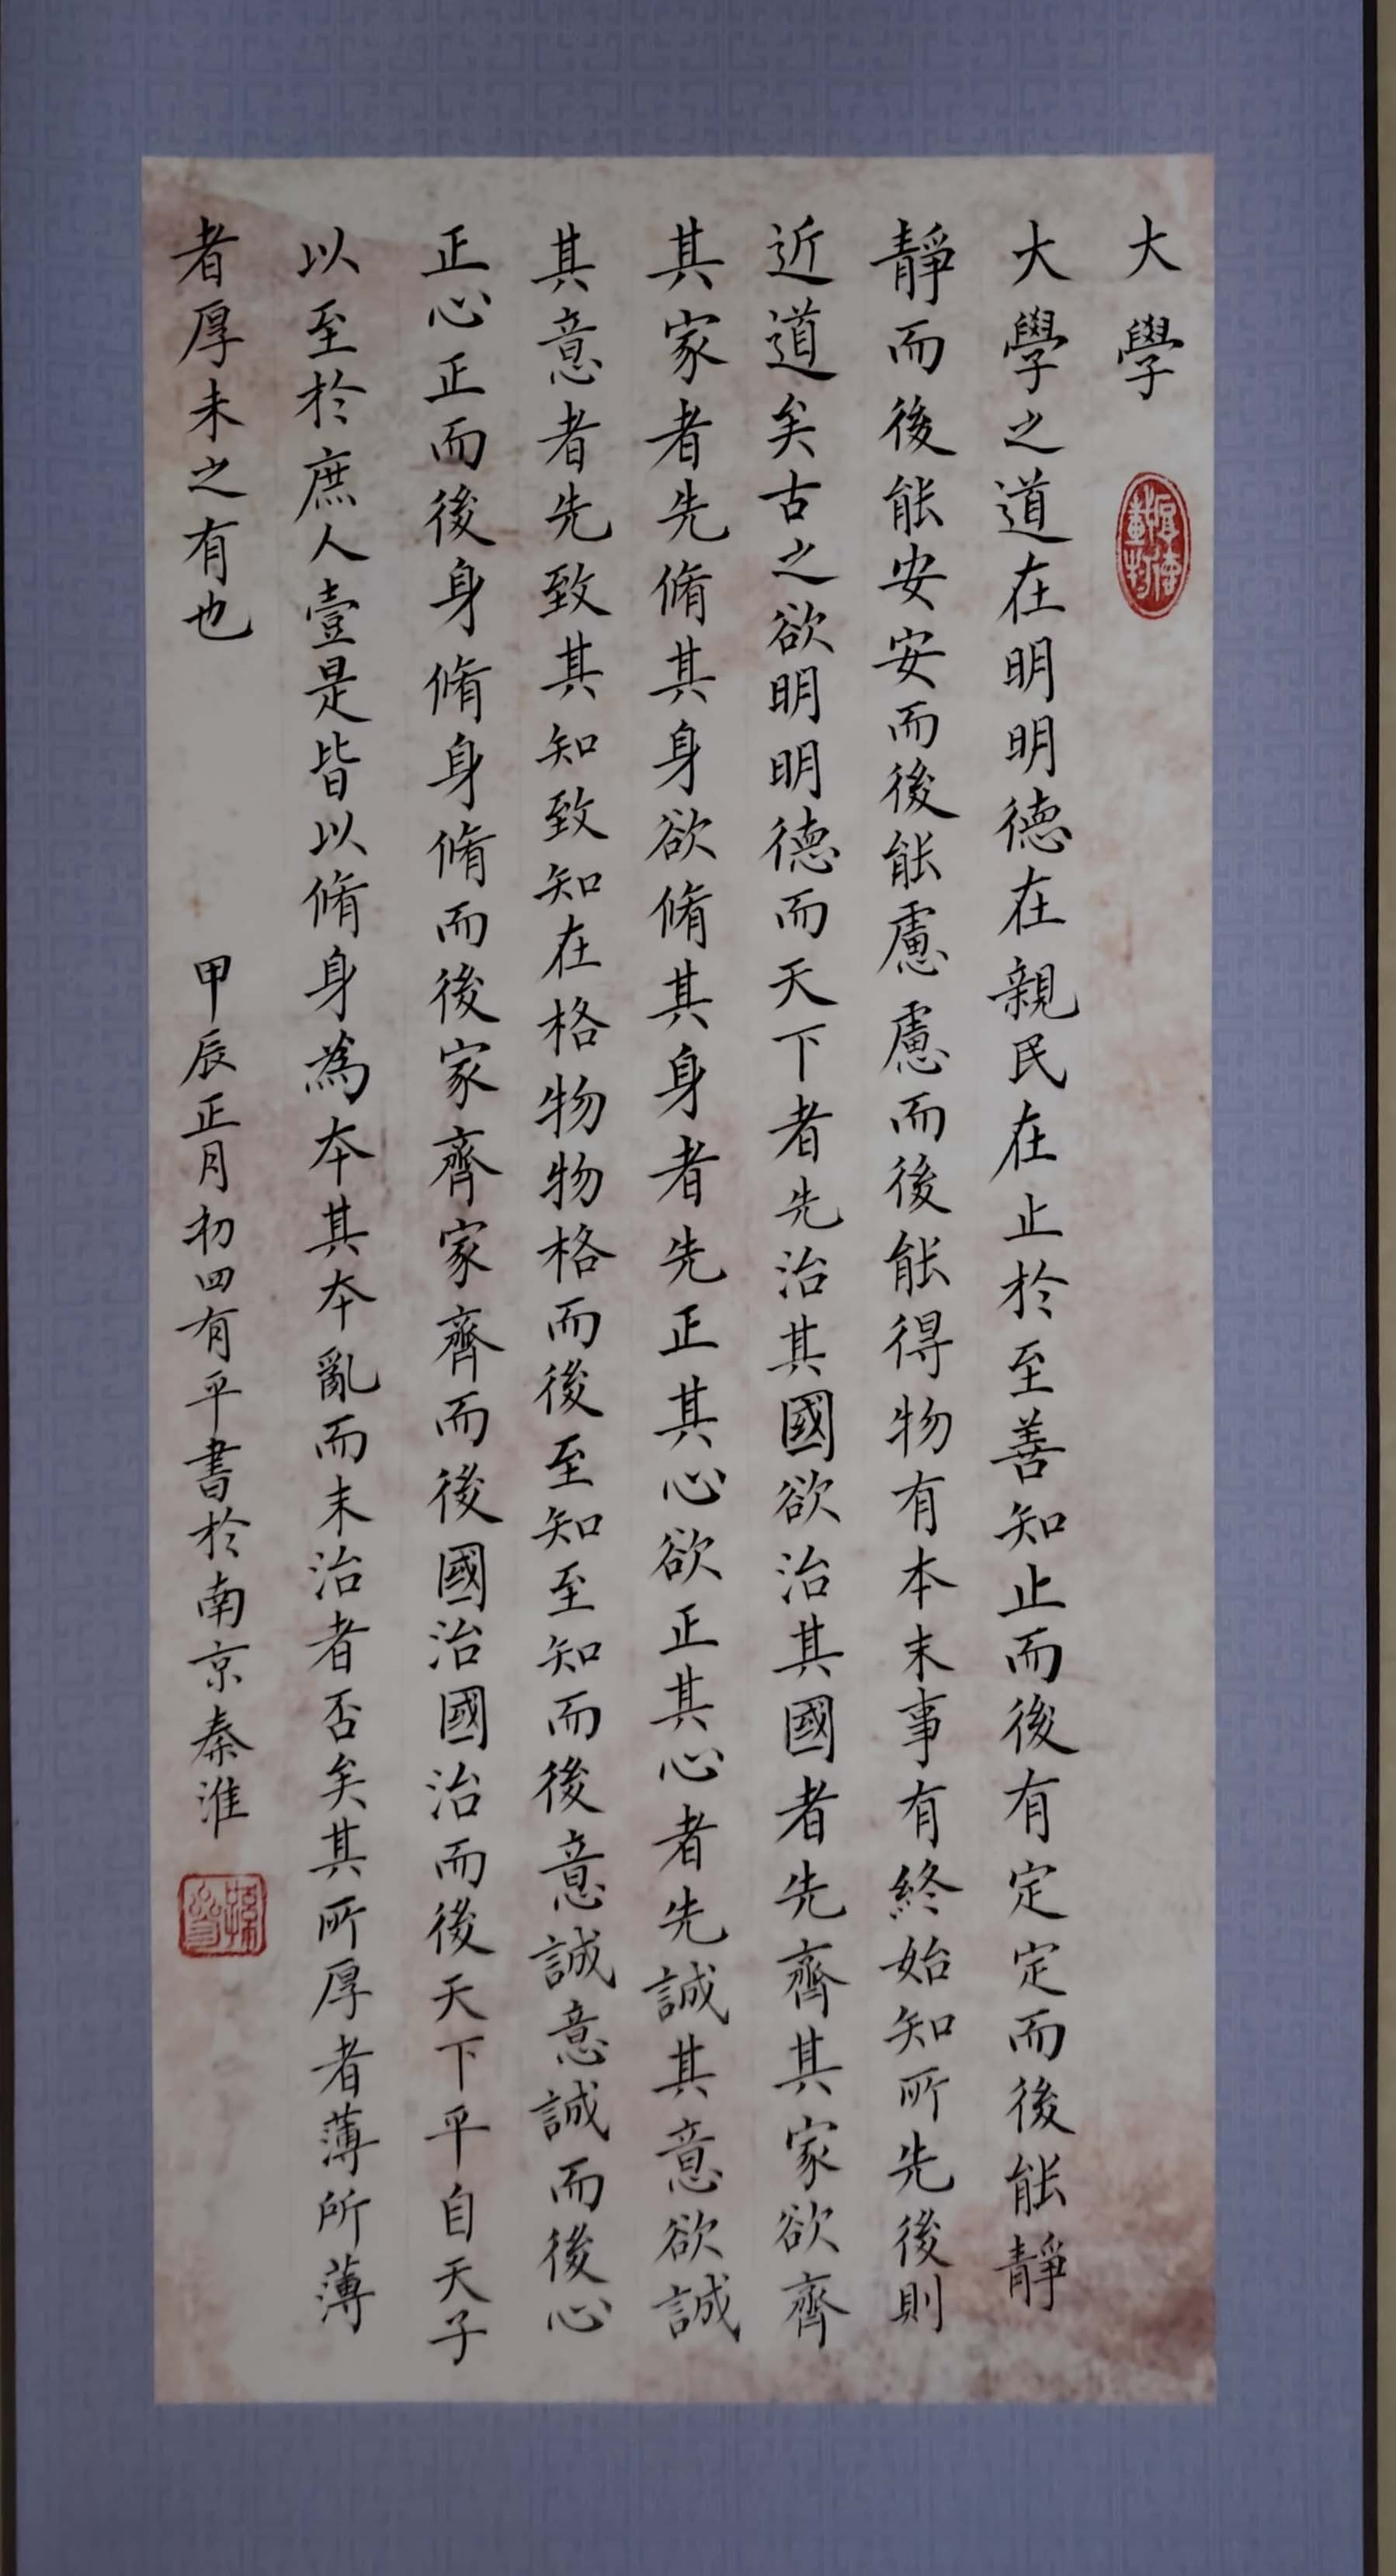 大學
大學之道在明明德在親民在止於至善知止而後有定定而後能靜
靜而後能安安而後能慮慮而後能得物有本末事有終始知所先後則
近道矣古之欲明明德而天下者先治其國欲治其國者先齊其家欲齊
其家者先脩其身欲脩其身者先正其心欲正其心者先誠其意欲誠
其意者先致其知致知在格物物格而後至知至知而後意誠意誠而後心
正心正而後身脩身脩而後家齊家齊而後國治國治而後天下平自天子
以至於庶人壹是皆以脩身為本其本亂而末治者否矣其所厚者薄所薄
者厚未之有也
甲辰正月初四有平書於南京秦淮